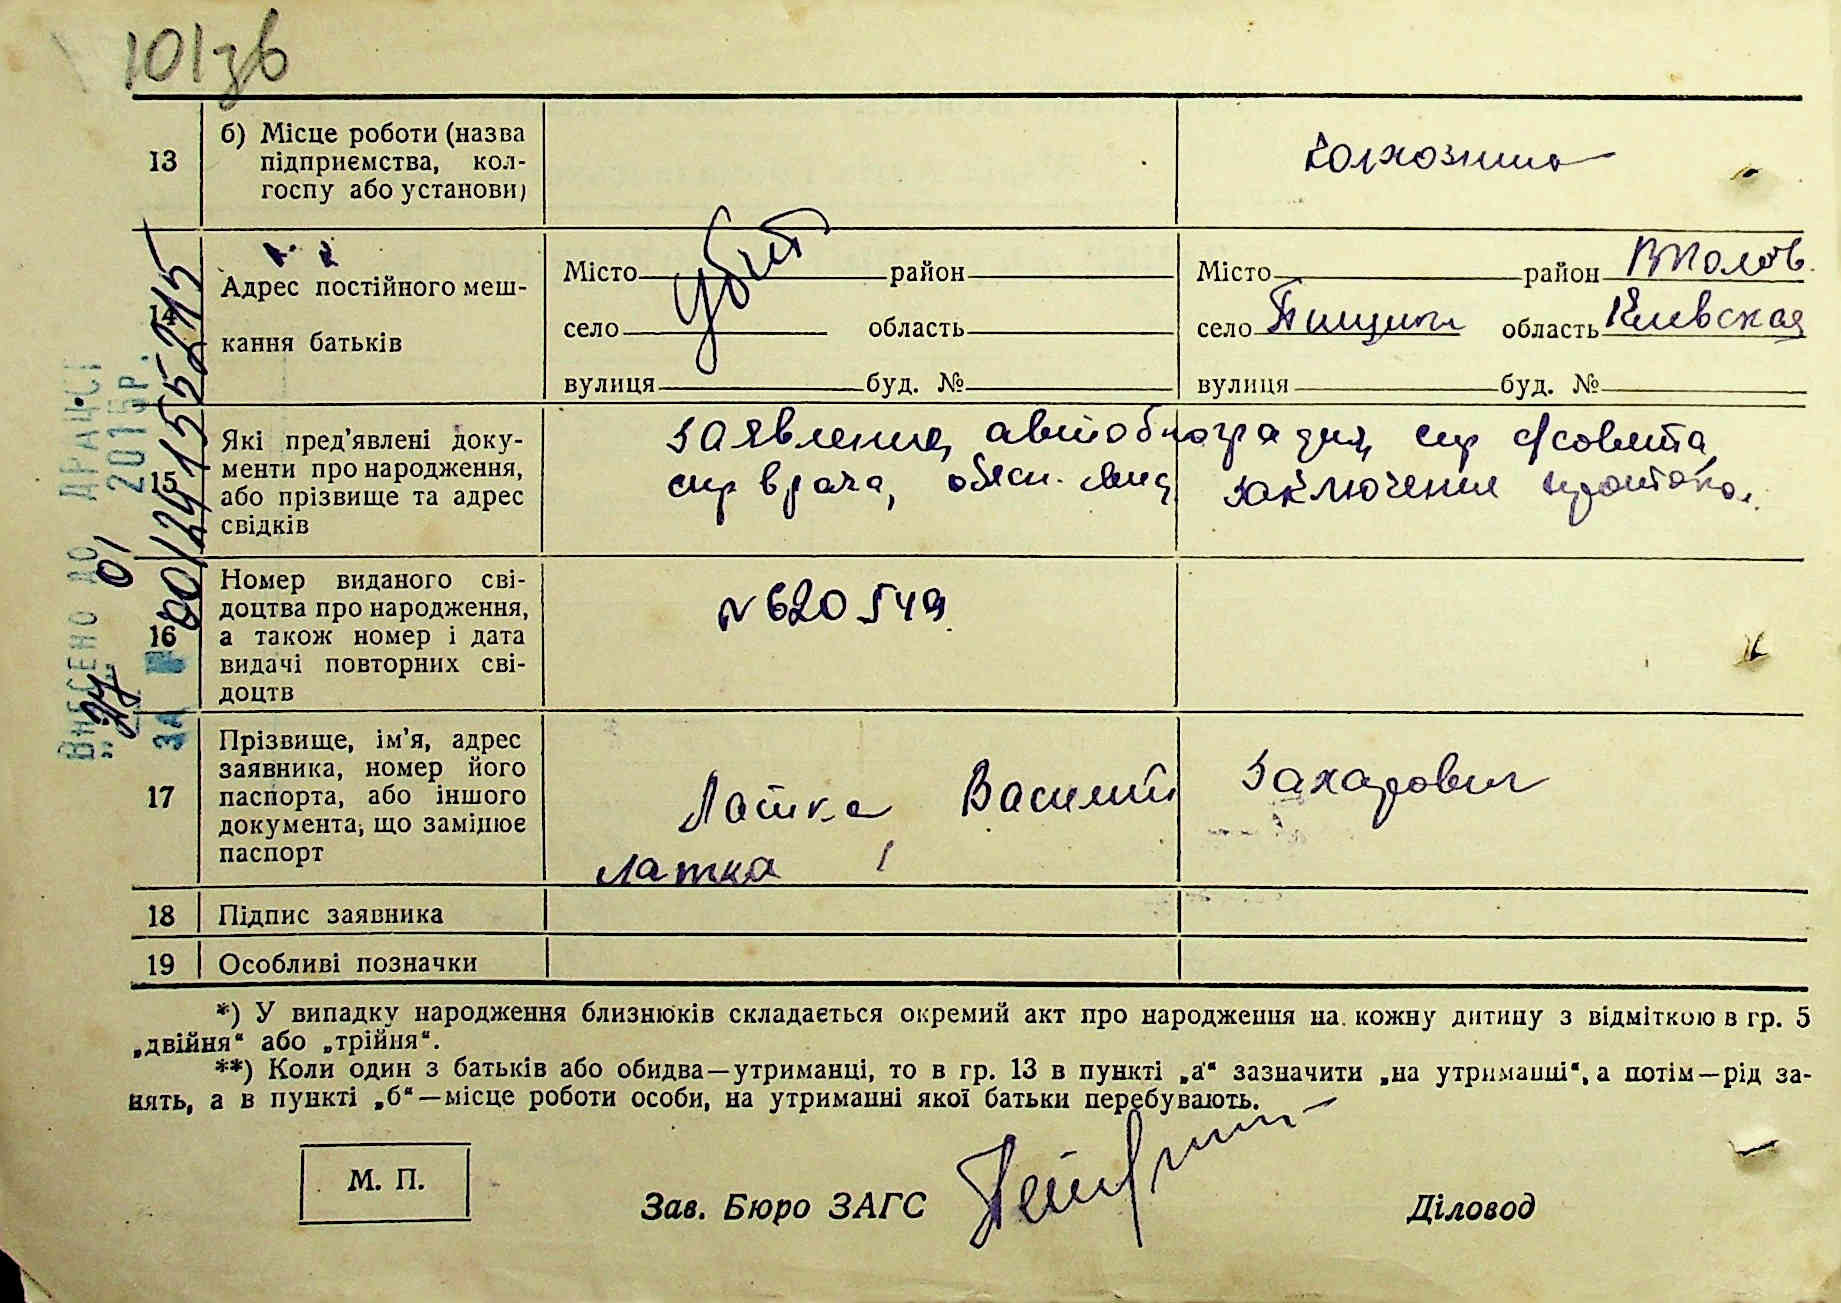 101зв
13
б) Місце роботи (назва
підприємства, кол-
госпу або установи)
колхозница
14
Адрес постійного меш-
кання батьків
Місто район
село область
вулиця буд. №
убит
Місто район
село область Киевская
вулиця буд. №
15
Які пред'явлені доку-
менти про народження,
або прізвище та адрес
свідків
заявление, автобиография, спр с/совета,
спр врача, заключение протокол.
16
Номер виданого сві-
доцтва про народження,
а також номер і дата
видачі повторних сві-
доцтв
№620549
17
Прізвище, ім'я, адрес
заявника, номер його
паспорта, або іншого
документа, що замінює
паспорт
Латка Василий Захарович
латка
18 Підпис заявника
19 Особливі позначки
ВНЕСЕНО ДО ДРАЦСГ
"27" 01 2015Р.
ЗА № 00124155215
*) У випадку народження близнюків складається окремий акт про народження на кожну дитину з відміткою в гр. 5
„двійня“ або „трійня“.
**) Коли один з батьків або обидва—утриманці, то в гр. 13 в пункті „а“ зазначити „на утриманні“, а потім—рід за-
нять, а в пункті „б“—місце роботи особи, на утриманні якої батьки перебувають.
М. П.
Зав. Бюро ЗАГС
Діловод